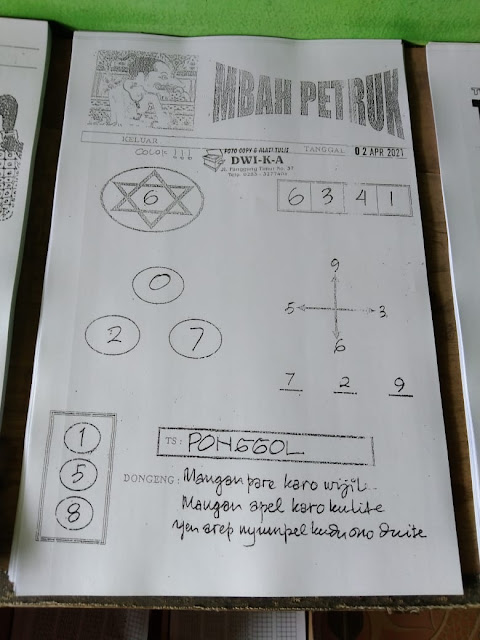 MBAH PETRUK
KELUAR
COLOK !!!
FOTO COPY & ALAT TULIS
DWI-K-A
TANGGAL 02 APR 2021
6
6 3 4 1
9
5 3
6
0
2 7
7 2 9
1
5
8
TS : PONGGOL
DONGENG : Mangan pare karo wijil..
Mangan apel karo kulite
Yen arep nyumpel kudu ono duite